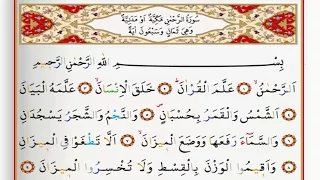 سُورَةُ الرَّحْمٰنِ مَكِّيَّةٌ اَوْ مَدَنِيَّةٌ
وَهِيَ ثَمَانٍ وَسَبْعُونَ اٰيَةً
بِسْــمِ اللهِ الرَّحْمٰنِ الرَّحِيمِ
اَلرَّحْمٰنُۙ ۝١ عَلَّمَ الْقُرْاٰنَۜ ۝٢ خَلَقَ الْاِنْسَانَۙ ۝٣ عَلَّمَهُ الْبَيَانَ
۝٤ اَلشَّمْسُ وَالْقَمَرُ بِحُسْبَانٍۖ ۝٥ وَالنَّجْمُ وَالشَّجَرُ يَسْجُدَانِ
۝٦ وَالسَّمَٓاءَ رَفَعَهَا وَوَضَعَ الْمِيزَانَۙ ۝٧ اَلَّا تَطْغَوْا فِي الْمِيزَانِ
۝٨ وَاَقِيمُوا الْوَزْنَ بِالْقِسْطِ وَلَا تُخْسِرُوا الْمِيزَانَ ۝٩